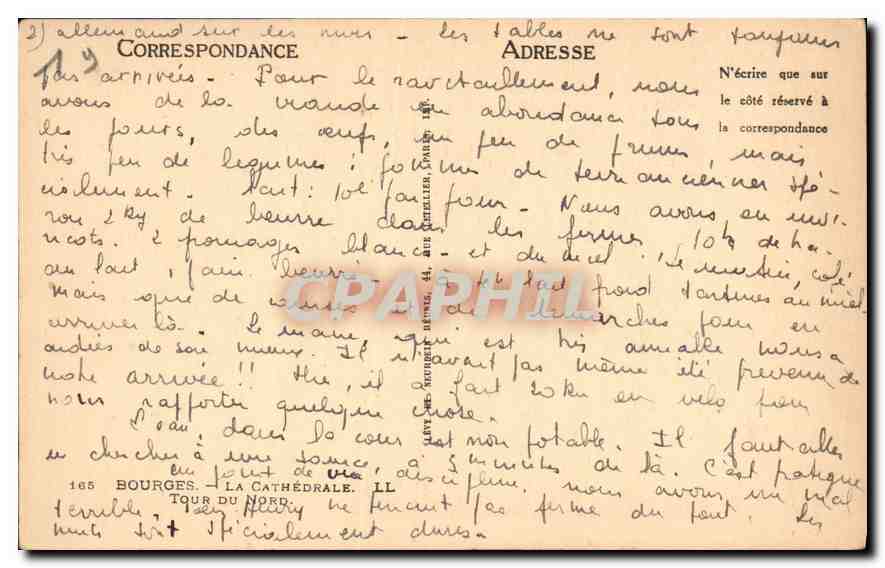 2) allemand sur les murs - Les tables ne sont toujours
CORRESPONDANCE
ADRESSE
pas arrivées - Pour le ravitaillement, nous
N'écrire que sur
le côté réservé à
la correspondance
avons de la viande en abondance tous
les jours, des œufs, un peu de prunes, mais
très peu de legumes : pommes de terre anciennes spé-
cialement. Lait : 10l par jour - Nous avons, en envi-
ron 2 kg de beurre dans les fermes, 10 k de ha-
ricots. 2 fromages blancs - et du miel. Le matin, café
au lait, pain beurré - à 4h lait froid tartines au miel -
Mais que de courses et de démarches pour en
arriver là. Le maire, qui est très aimable nous a
aidés de son mieux. Il n'avait pas même été prevenu de
notre arrivée !! il a fait 20 km en velo pour
nous rapporter quelque chose.
L'eau, dans la cour est non potable. Il faut aller
en chercher à une source, à 5 minutes de là. C'est pratique
au point de vue discipline, nous avons un mal
165 BOURGES. - LA CATHÉDRALE. LL
TOUR DU NORD.
terrible, ne tenant pas ferme du tout. Les
nuits sont spécialement dures.
LÉVY ET NEURDEIN RÉUNIS, 44, RUE LETELLIER, PARIS
CPAPHIL